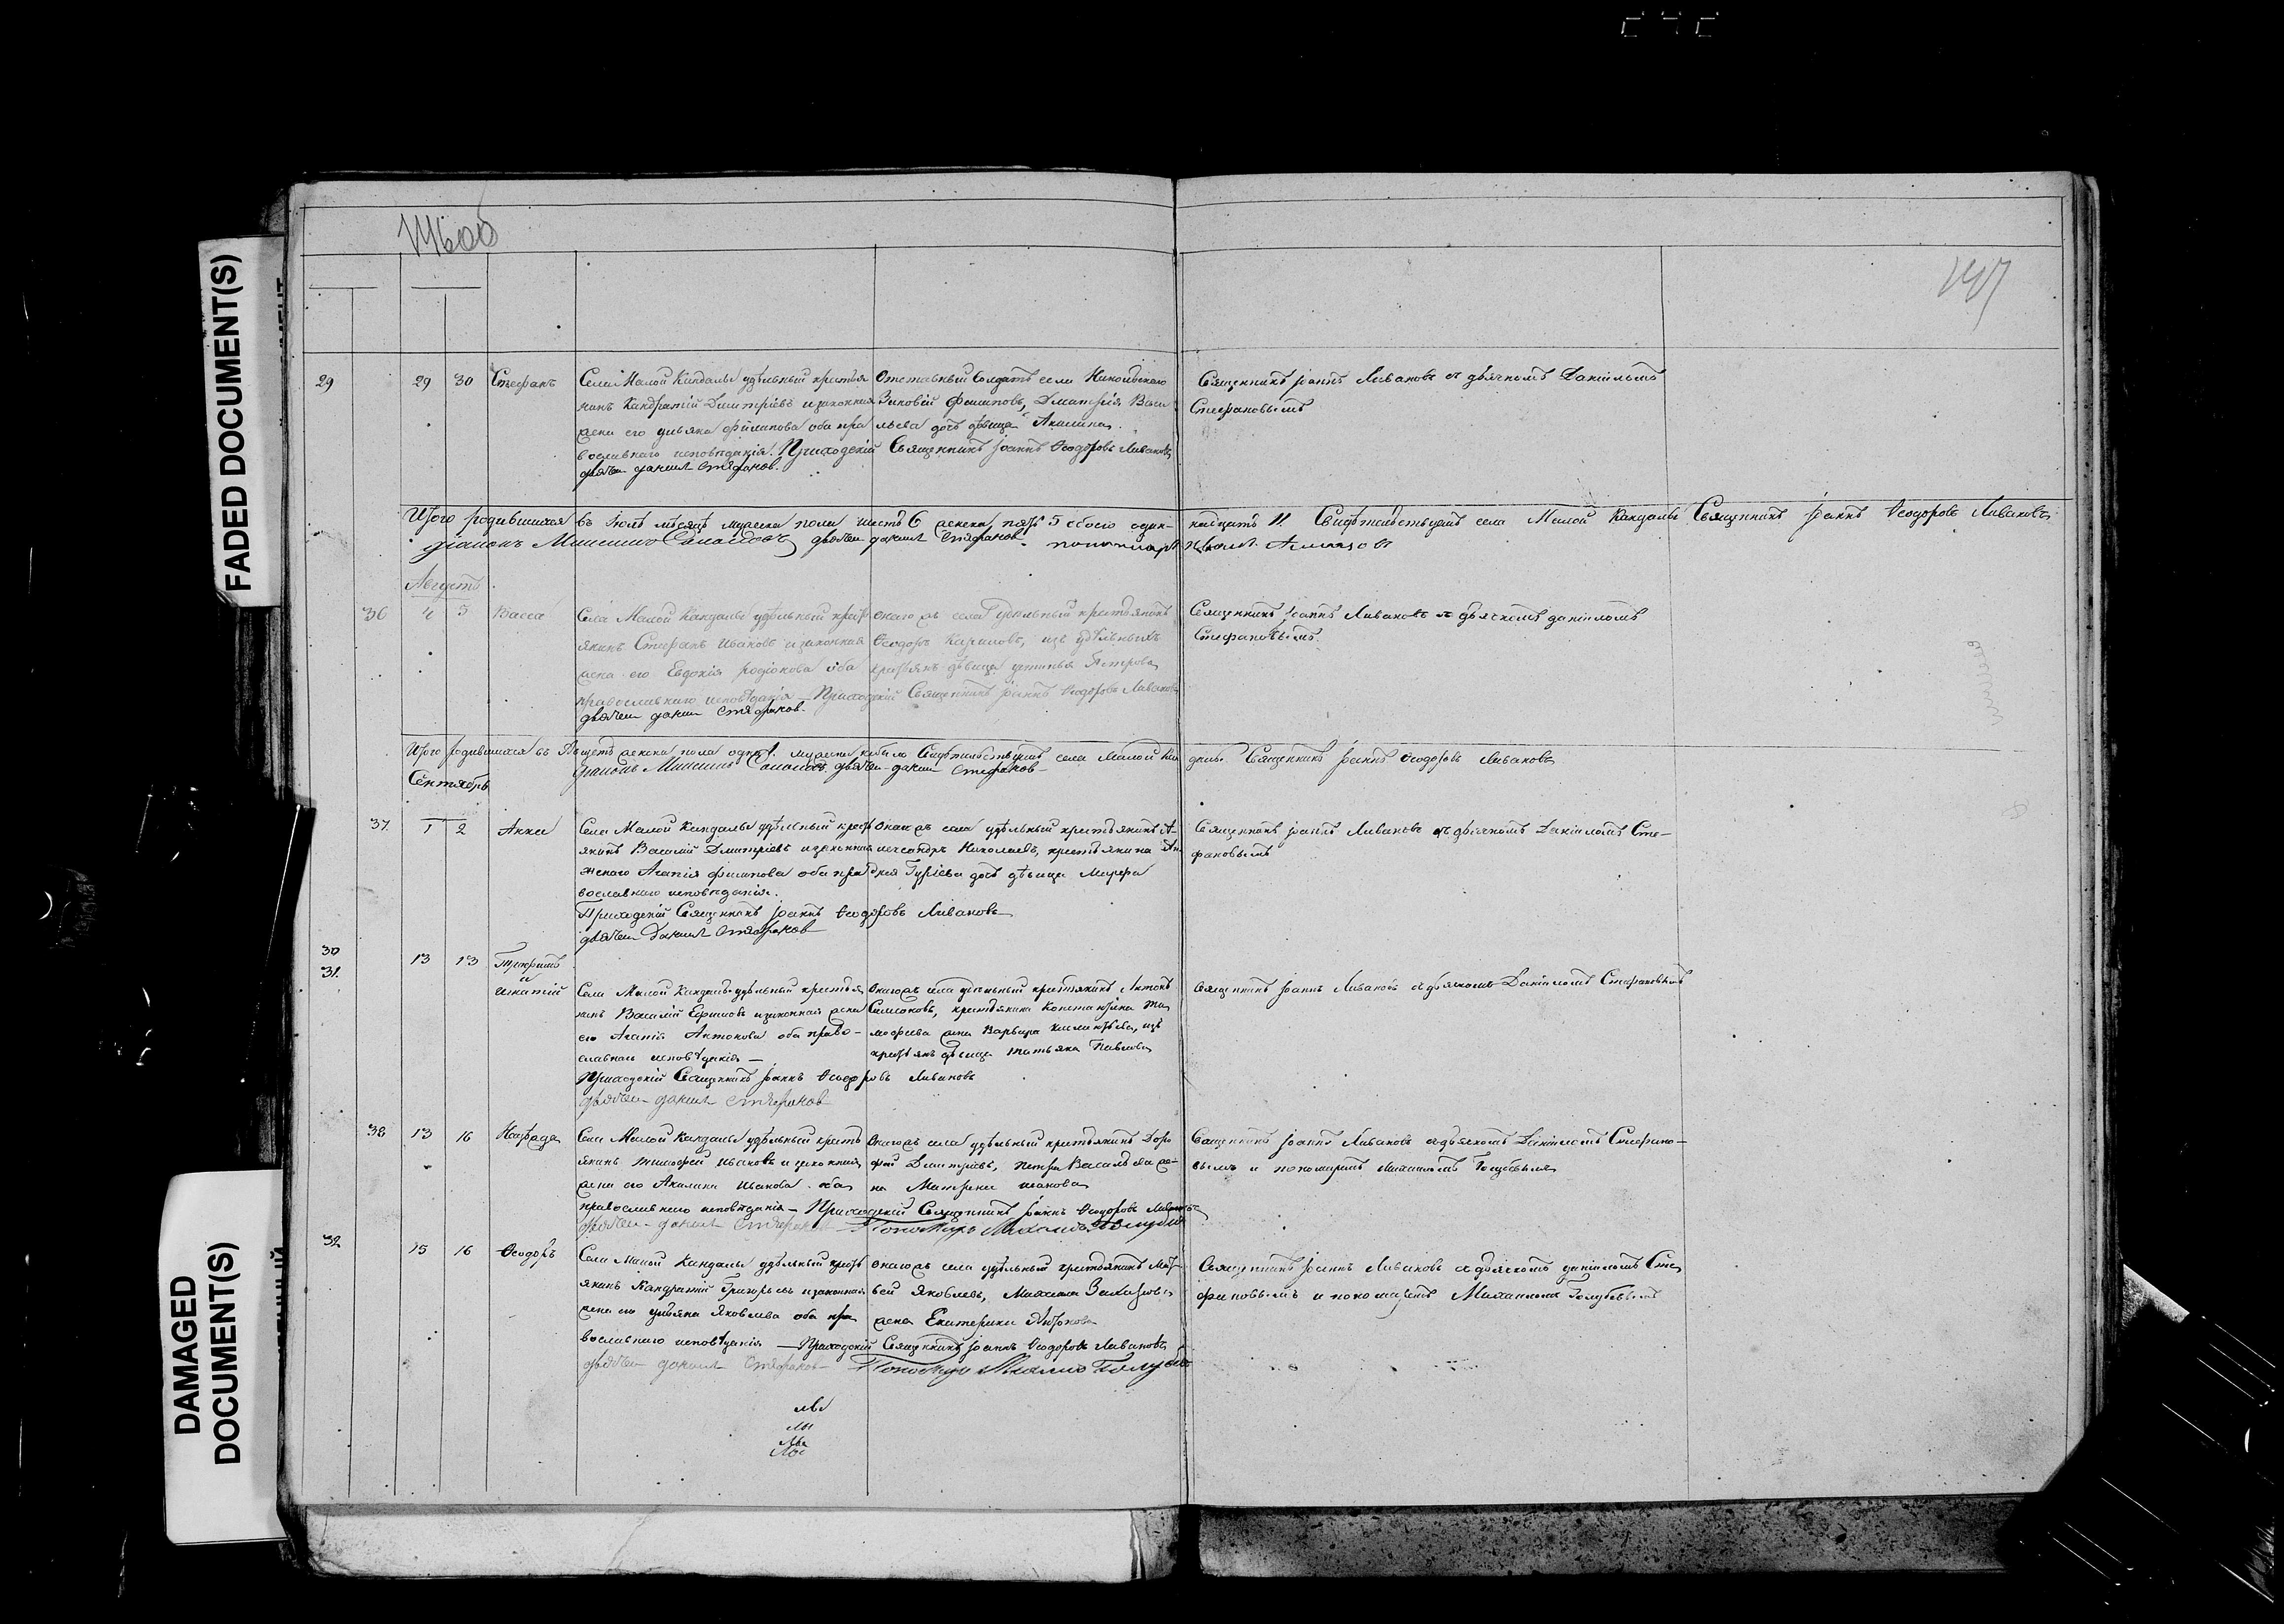 FADED DOCUMENT(S)
DAMAGED
DOCUMENT(S)
147
29 29 30 Стефанъ
Села Малой Кандалы удѣльный крестья
нинъ Кандратій Дмитріевъ изаконная
жена его ульяна Филипова оба пра
вославнаго исповѣданія. Приходскій Священникъ Іоаннъ Ѳеодоровъ Ливановъ
дьячекъ данилъ Стефановъ.
Отставный Солдатъ села Никольскаго
Зиновій Филиповъ, Дмитрія Васи
льева дочь дѣвица Акилина.
Священникъ Іоаннъ Ливановъ съ дьячкомъ Даніиломъ
Стефановымъ
Итого родившихся въ Іюлѣ мѣсяцѣ мужеска пола шесть 6 женска пять 5 обоего один-надцать 11. Свидѣтельствуемъ села Малой Кандалы Священникъ Іоаннъ Ѳеодоровъ Ливановъ
дьячекъ данилъ Стефановъ
Августъ
36 4 5 Васса
Села Малой Кандалы удѣльный крест
янинъ Стефанъ Ивановъ изаконная
жена его Евдокія родіонова оба
православнаго исповѣданія — Приходскій Священникъ Іоаннъ Ѳеодоровъ Ливановъ
дьячекъ данилъ Стефановъ.
онагожъ села удѣльный крестьянинъ
Ѳеодоръ Кариловъ, изъ удѣльныхъ
крестьянъ дѣвица устинья Петрова
Священникъ Іоаннъ Ливановъ съ дьячкомъ даніиломъ
Стефановымъ.
Итого родившихся въ Августѣ женска пола одна 1. мужеска небыло Свидѣтельствуемъ села Малой Кандалы. Священникъ Іоаннъ Ѳеодоровъ Ливановъ
дьячекъ данилъ Стефановъ
Сентябрь
37. 1 2 Анна
Села Малой Кандалы удѣльный крест
янинъ Василий Дмитріевъ изаконная
женаего Агапія филипова оба пра
вославнаго исповѣданія.
Приходскій Священникъ Іоаннъ Ѳеодоровъ Ливановъ
дьячекъ Данилъ Стефановъ
онагожъ села удѣльный крестьянинъ А-
лександръ Николаевъ, крестьянина Ан
дрея Гурiева дочь дѣвица Марфа
Священникъ Іоаннъ Ливановъ съ дьячкомъ Даніиломъ Сте-
фановымъ
30
31. 13 13 Трифилъ
и
Игнатій
Села Малой Кандалы удѣльный крестья
нинъ Василій Ефимовъ изаконная жена
его Агапія Антонова оба право-
славнаго исповѣданія —
Приходскій Священникъ Іоаннъ Ѳеодоровъ Ливановъ
дьячекъ данилъ Стефановъ
Онагожъ села удѣльный крестьянинъ Антонъ
Симоновъ, крестьянина Константина Ти
мофеева жена Варвара, изъ
крестьянъ дѣвица татьяна Павлова
Священникъ Іоаннъ Ливановъ съ дьячкомъ Даніиломъ Стефановымъ
38 13 16
Села Малой Кандалы удѣльный кресть
янинъ тимофей Ивановъ изаконная
жена его Акилина Иванова оба
православнаго исповѣданія — Приходскій Священникъ Іоаннъ Ѳеодоровъ Ливановъ
дьячекъ данилъ Стефановъ — Пономарь Михаилъ Голубевъ
Онагожъ села удѣльный крестьянинъ Доро
фей Дмитріевъ, петра Васильева же-
на Матрена иванова
Священникъ Іоаннъ Ливановъ съ дьячкомъ Даніиломъ Стефано-
вымъ и пономаремъ Михаиломъ Голубевымъ
32 15 16 Ѳеодоръ
Села Малой Кандалы удѣльный крест
янинъ Кандратій Григорьевъ изаконная
жена его ульяна Яковлева оба пра
вославнаго исповѣданія — Приходскій Священникъ Іоаннъ Ѳеодоровъ Ливановъ
дьячекъ данилъ Стефановъ — Пономарь Михаилъ Голубевъ
онагожъ села удѣльный крестьянинъ Мат-
вей Яковлевъ, Михаила Захарова
жена Екатерина Антонова
Священникъ Іоаннъ Ливановъ съ дьячкомъ даніиломъ Сте
фановымъ и пономаремъ Михаиломъ Голубевымъ